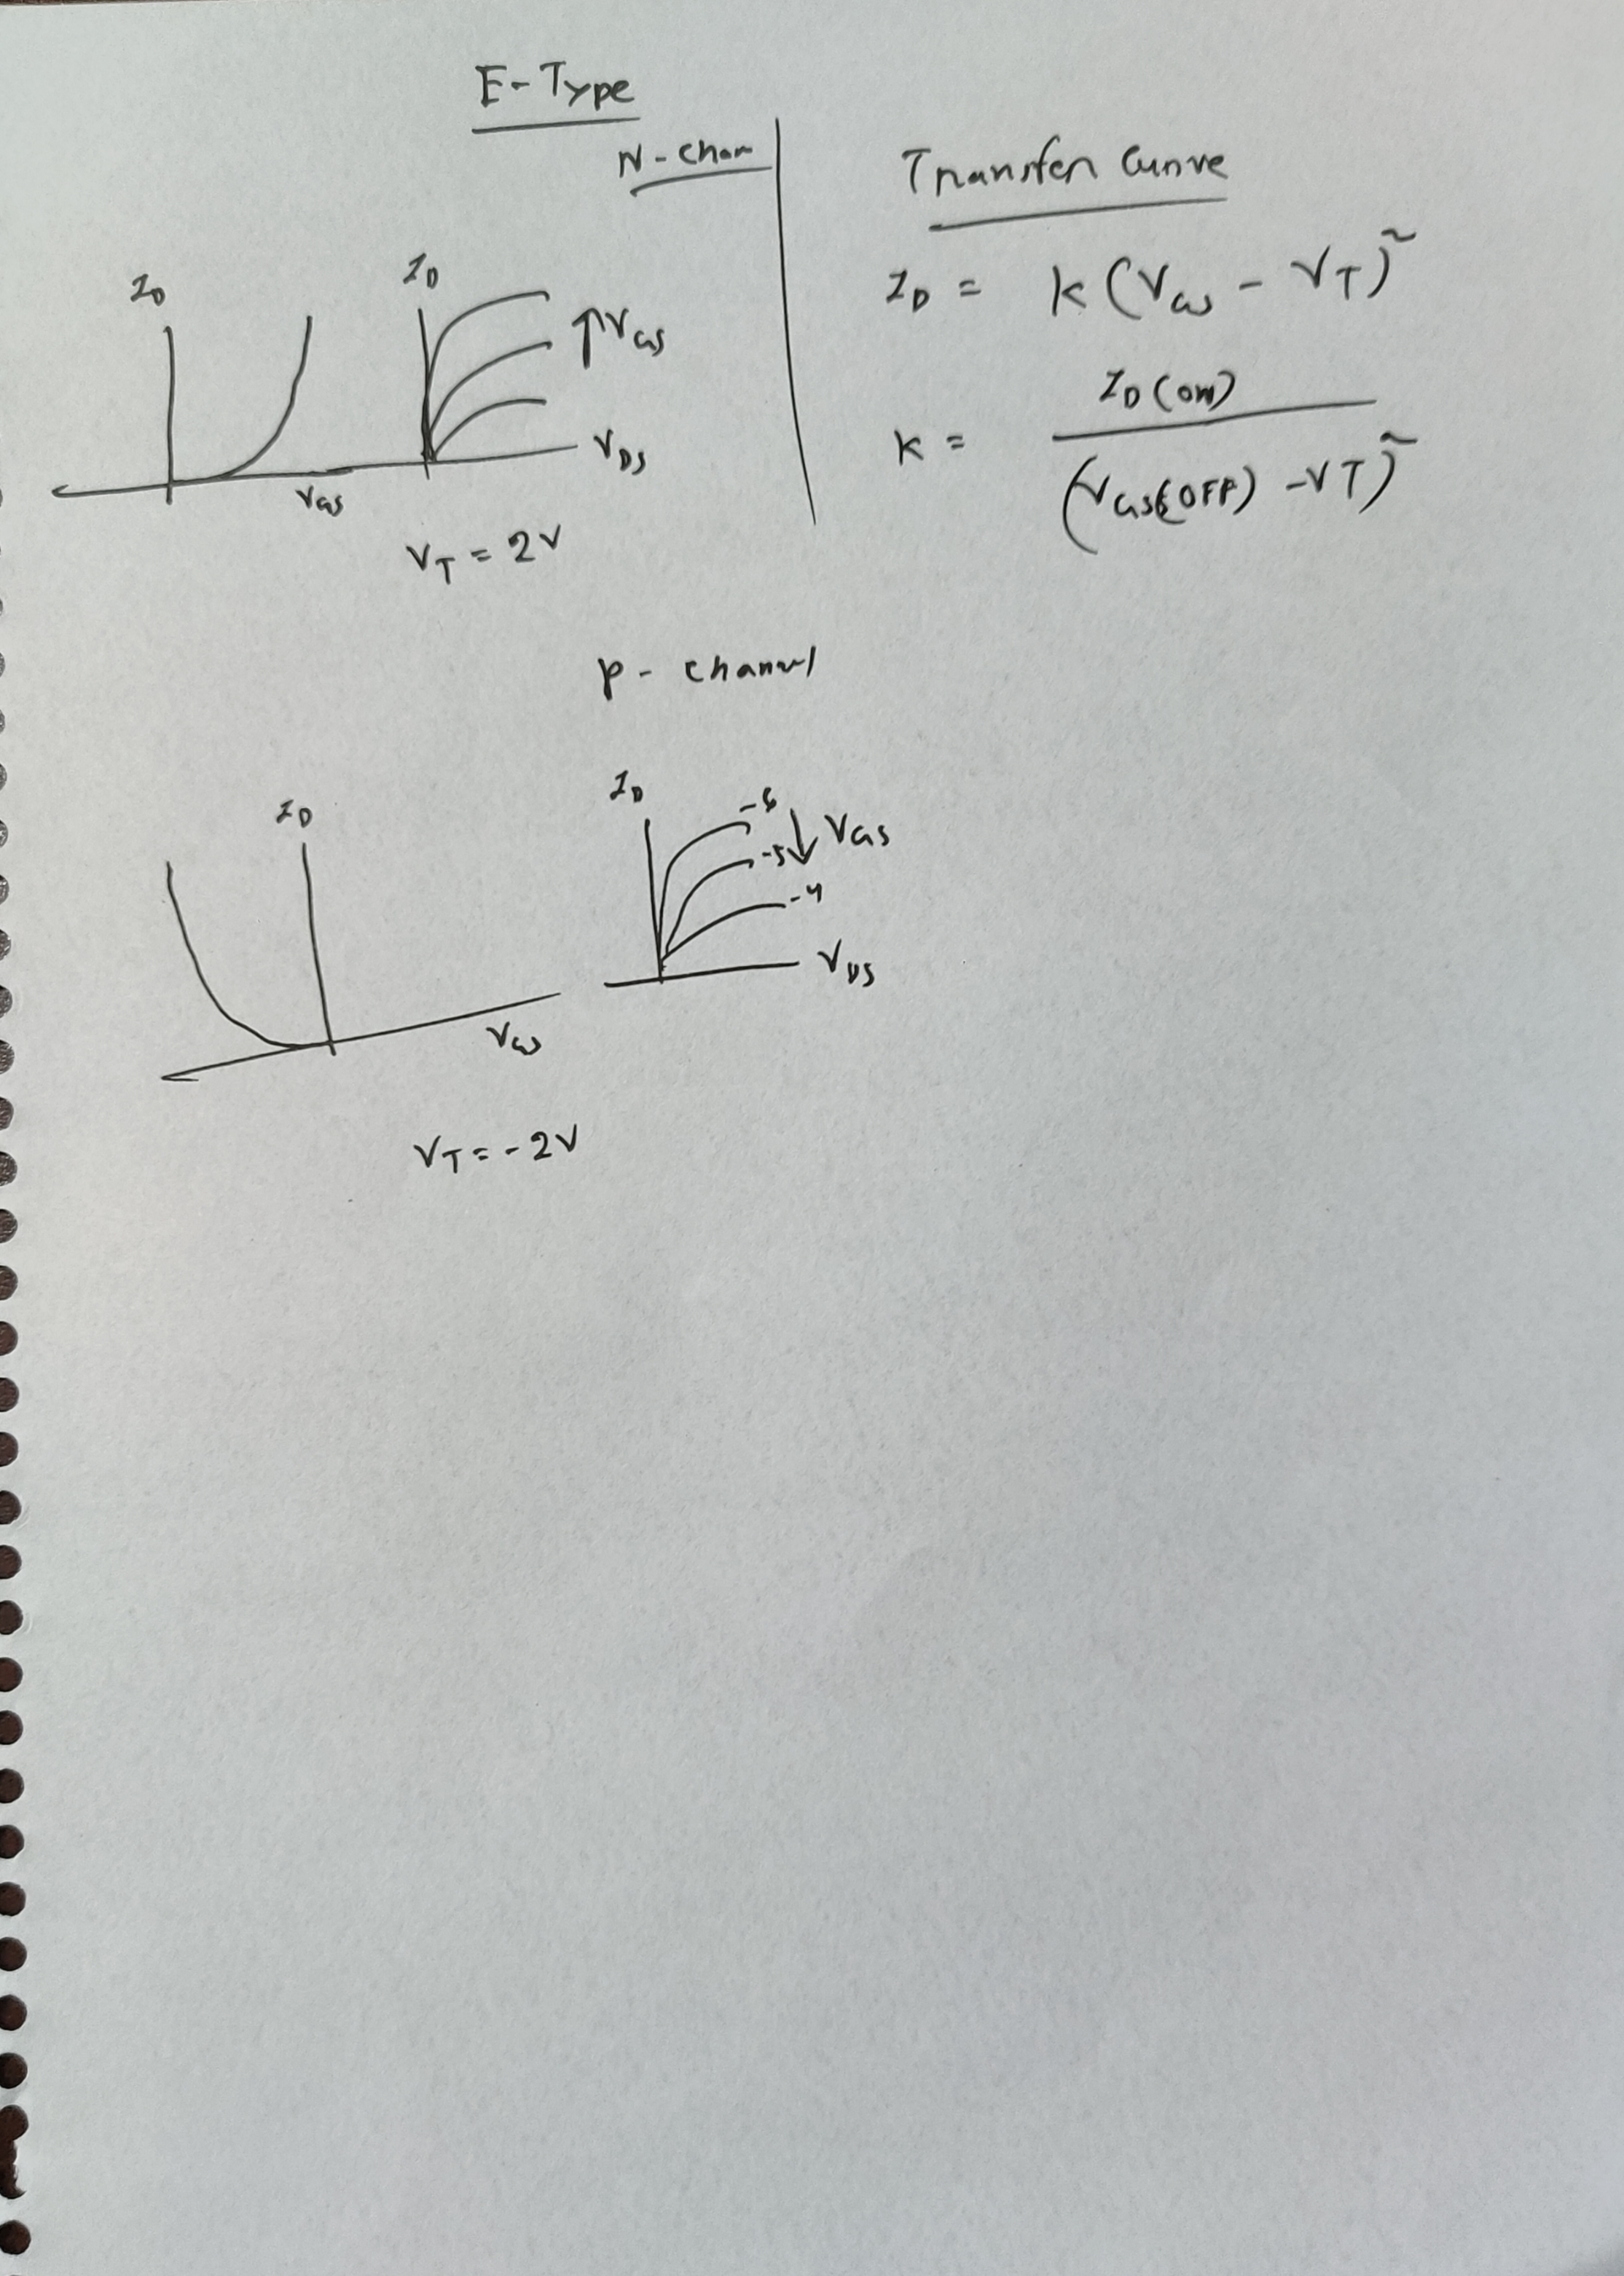 E-Type
N-Chan
I_D
I_D
↑V_GS
V_DS
V_GS
V_T = 2V
Transfer Curve
I_D = k(V_GS - V_T)²
k = I_D(ON) / (V_GS(OFF) - VT)²
p- channel
I_D
I_D
-6
-5 ↓ V_GS
-4
V_DS
V_GS
V_T = -2V